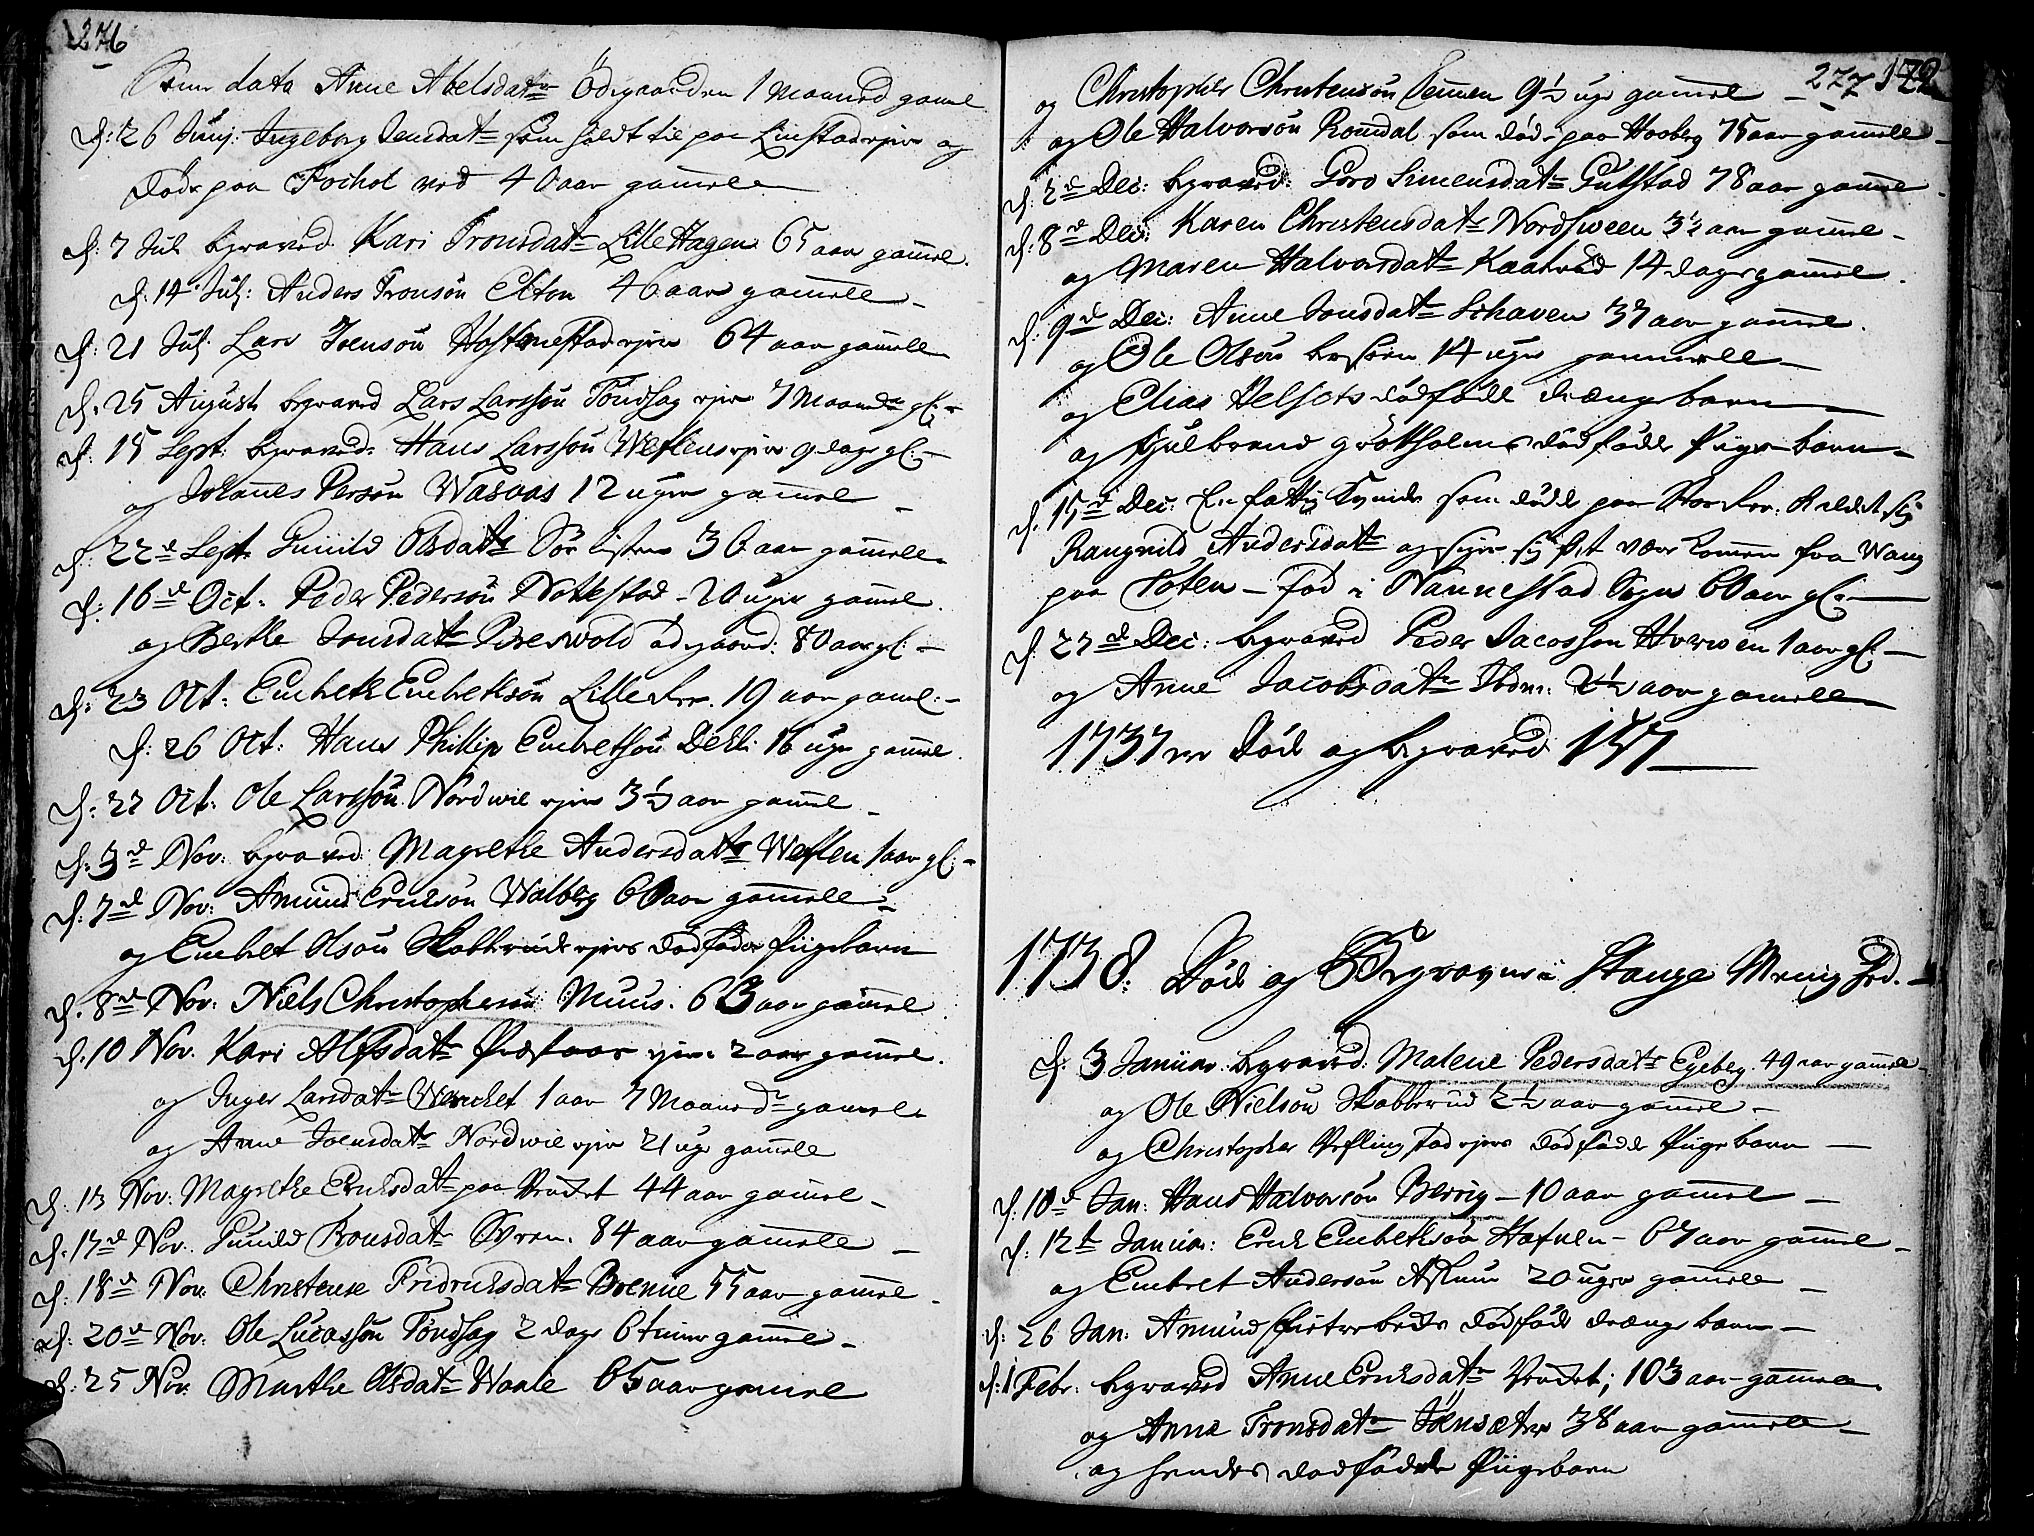 276
data Anne Abelsdatr Ödegaarden 1 Maaned gamel
d: 26 Junj: Ingeborg Jensdatr som holdt til paa Linstad ejer og
døde paa Fockol ved 40 aar gammel
d: 7 Jul begraved Kari Tronsdatr Lille Hagen 65 aar gamel.
d. 14 Jul: Anders Tronsøn Elton 46 aar gamell
d: 21 Jul Lars Joensøn ejer 64 aar gamell
d. 25 August begraved Lars Larssøn Tøndsag ejer 7 Maaneder gl:
d. 15 Sept: begraved Hans Larssøn Weflens ejer 9 dage gl:
og Johanes Persøn Wasaas 12 uger gamel
d. 22d Sept Gunild Olsdatr Sør 36 aar gamell
d: 16d Oct: Peder Pedersøn Nokkestad 20 uger gamel.
og Berthe Jonsdatr 80 aar gl:
d: 23 Oct: Embreth Embrethsøn Lille 19 aar gamel:
d: 26 Oct: Hans Phillip Embretsøn Dehli 16 uger gamel.
d: 27 Oct: Ole Larssøn Nordwie ejer 3½ aar gamel
d: 3d Nov: begraved: Magrethe Andersdatr Weflen 1 aar gl:
d. 7d Nov: Amund Ericksøn Walberg 60 aar gamell
og Embret Olsøn Skabberud ejers dødfødde Pigebarn
d. 8d Nov: Niels Christophersøn Muus. 63 aar gamel
d. 10 Nov. Kari Alfsdatr ejer 2 aar gamel.
og Inger Larsdatr 1 aar 7 Maaneder gamel
og Anne Joensdatr Nordwie ejer 21 uge gamell
d. 13 Nov: Magrethe Ericksdatr paa 44 aar gamel
d. 17d Nov. Gunild Tronsdatr 84 aar gamell
d: 18d Nov: Christense Fridricksdatr Brenne 55 aar gamel
d: 20d Nov: Ole Lucassøn Tøndsag 2 dage 6 timer gamel
d. 25 Nov. Marthe Olsdatr Waale 65 aar gamel
277 172
og Christopher Christensøn 9½ uge gamel
og Ole Halvorsøn Romdal som døde paa Hooberg 75 aar gamell
d. 2d Dec: begraved: Goro Simensdatr Gutstad 78 aar gamel
d. 8d Dec: Karen Christensdatr Nordsween 3½ aar gamel
og Maren Halvorsdatr 14 dage gamel.
d. 9d Dec: Anne Jonsdatr 37 aar gamel.
og Ole Olsøn 14 uger gammell
og Elias Helsets dødfødde drænge barn
og Gulbrand Grøtholms dødfødde Pige barn
d. 15d Dec: En fattig Kvinde som døde paa kaldet sig
Rangnild Andersdatr og siger sig at være kommen fra Wang
paa Toten - Fød i Nannestad Sogn 60 aar gl:
d. 27d Dec: begraved Peder Jacobsøn 1 aar gl:
og Anne Jacobsdatr Ibdm: 2½ aar gamell
1737 er døde og begraved 157
1738: Døde og Begravne i Stange Menighed.
d: 3 Januar: begraved: Malene Pedersdatr Egeberg 49 aar gamel
og Ole Nielsøn Skabberud 2½ aar gamel
og Christopher ejers dødfødde Pige barn
d. 10d Jan: Hans Halvorsøn Berrig 10 aar gamel
d. 12t Januar: Erick Embrethsøn Hafnen 67 aar gamel
og Embret Andersøn 20 uger gamell
d: 26 Jan: Amund dødfødde drænge barn
d. 1 Febr: begraved Anne Ericksdatr 103 aar gamel
og Anne Tronsdatr 38 aar gamell
og hendes dødfødde Pigebarn